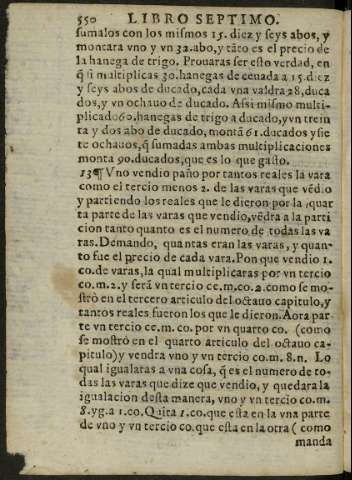 550 LIBRO SEPTIMO.
sumalos con los mismos 15. diez y seys abos, y
montara vno y vn 32. abo, y tãto es el precio de
la hanega de trigo. Prouaras ser esto verdad, en
q̃ si multiplicas 30. hanegas de ceuada a 15. diez
y seys abos de ducado, cada vna valdra 28, duca
dos, y vn ochauo de ducado. Assi mismo multi-
plicado 60. hanegas de trigo a ducado, y vn trein
ta y dos abo de ducado, montã 61. ducados y sie
te ochauos, q̃ sumadas ambas multiplicaciones
monta 90. ducados, que es lo que gasto.
13 ¶ Vno vendio paño por tantos reales la vara
como el tercio menos 2. de las varas que vẽdio
y partiendo los reales que le dieron por la, quar
ta parte de las varas que vendio, vẽdra a la parti
cion tanto quanto es el numero de todas las va
ras. Demando, quantas eran las varas, y quan-
to fue el precio de cada vara. Pon que vendio 1.
co. de varas, la qual multiplicaras por vn tercio
co. m. 2. y serà vn tercio ce. m. co. 2. como se mo-
strò en el tercero articulo del octauo capitulo, y
tantos reales fueron los que le dieron. Aora par
te vn tercio ce. m. co. por vn quarto co. (como
se mostrò en el quarto articulo del octauo ca-
pitulo) y vendra vno y vn tercio co. m. 8. n. Lo
qual igualaras a vna cosa, q̃ es el numero de to-
das las varas que dize que vendio, y quedara la
igualacion desta manera, vno y vn tercio co. m.
8. yg. a 1. co. Quita 1. co. que esta en la vna parte
de vno y vn tercio co. que esta en la otra (como
manda